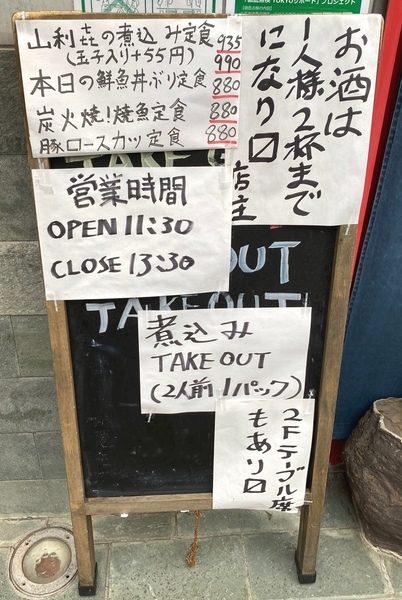 山利㐂の煮込み定食 935
(玉子入り+55円) 990
本日の鮮魚丼ぶり定食 880
炭火焼!焼魚定食 880
豚ロースカツ定食 880
お酒は
1人様2杯まで
になり〼
店主
営業時間
OPEN 11:30
CLOSE 13:30
OUT
TAKE OUT
煮込み
TAKE OUT
(2人前1パック)
2Fテーブル席
もあり〼